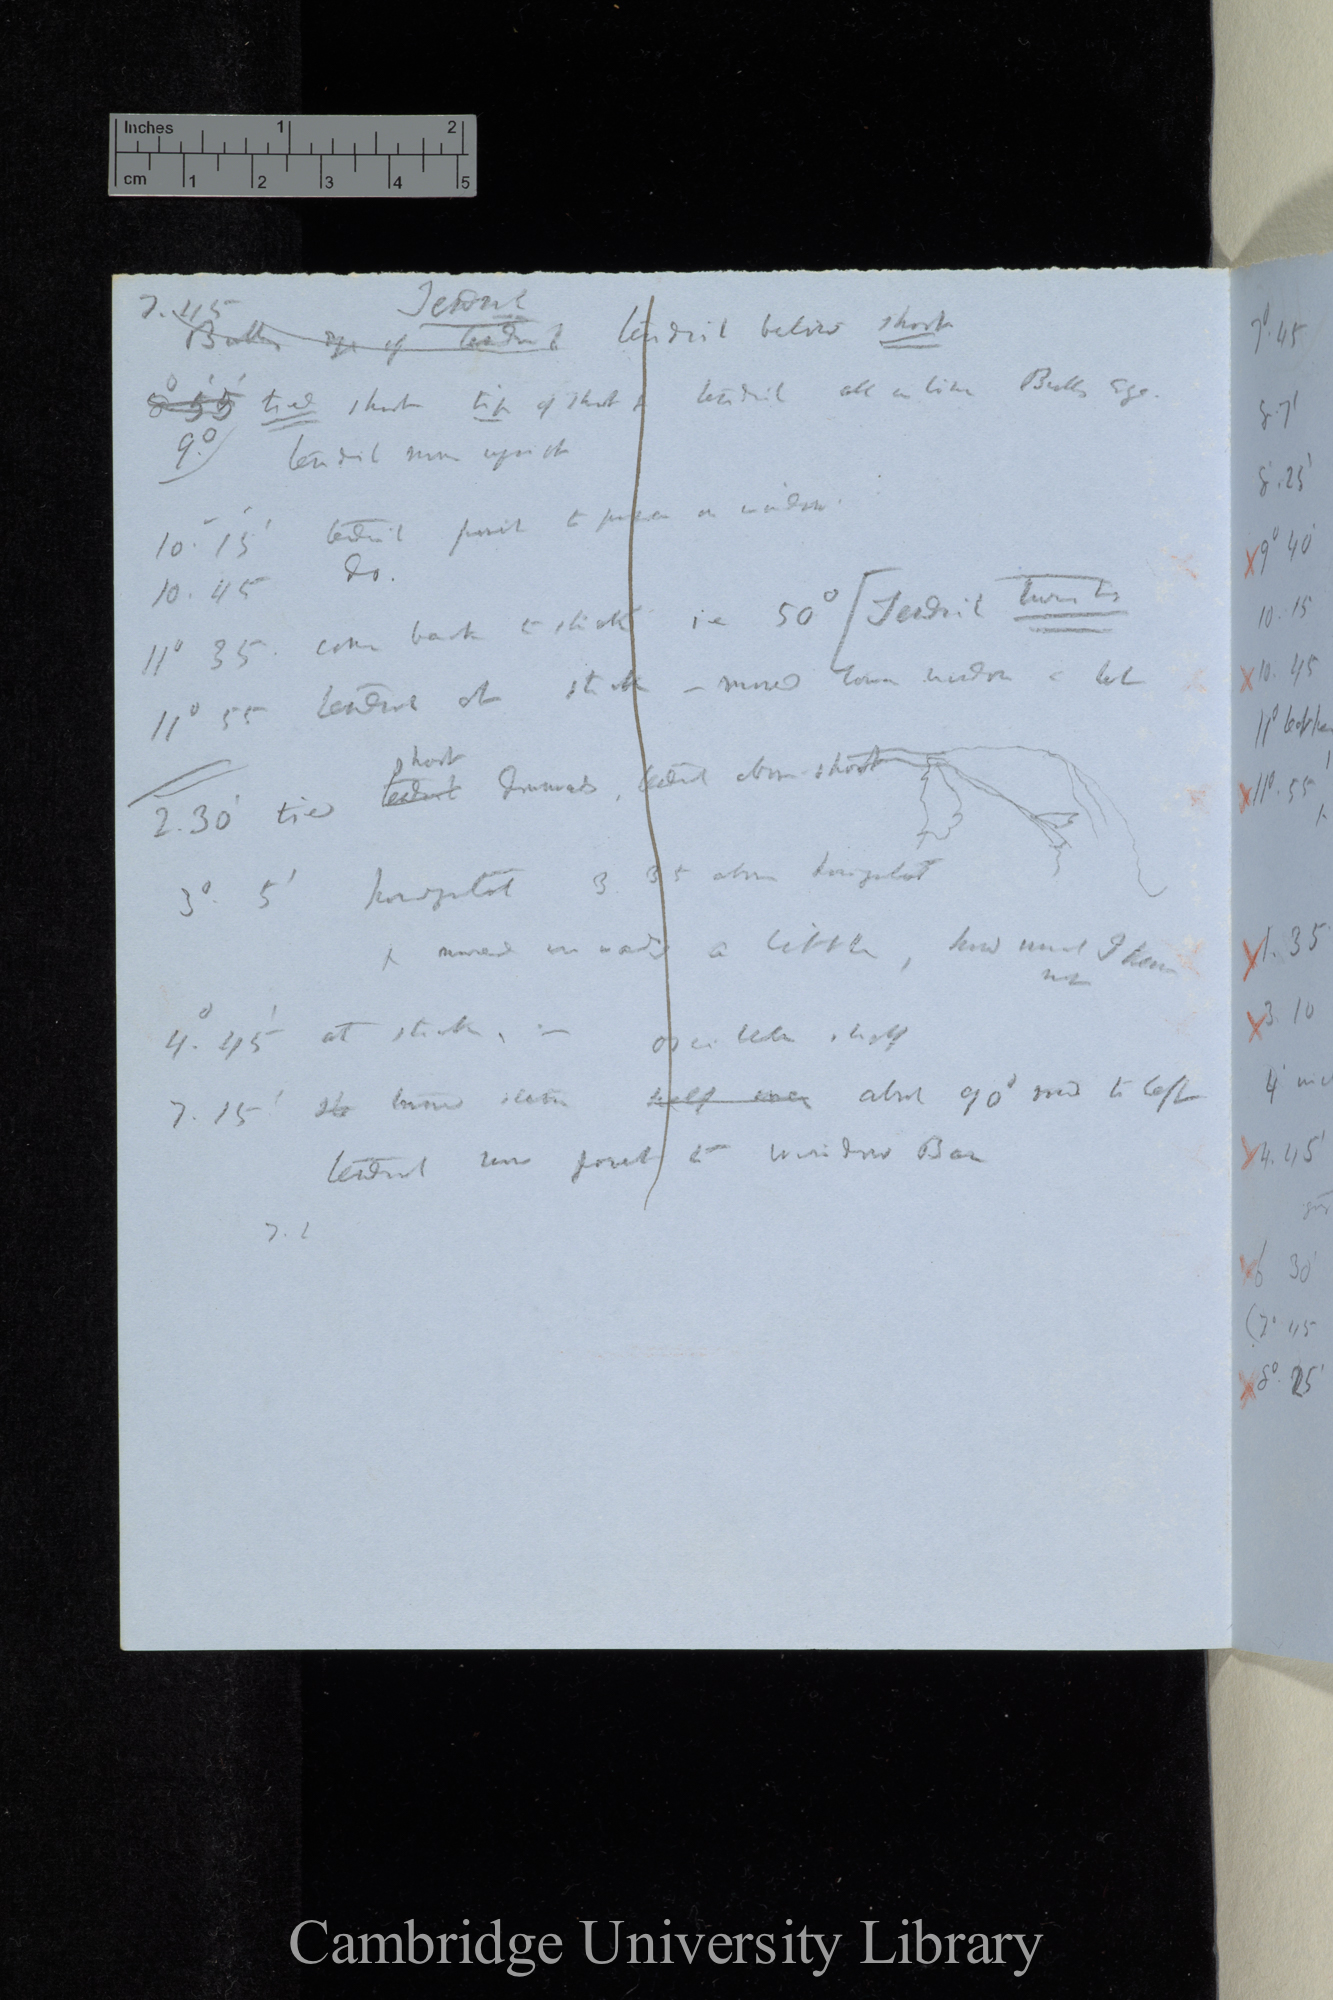 Inches 1 2
cm 1 2 3 4 5
7.45 Tendril
Bulls eye of tendril tendril below shoot
8° 55' tied shoot tip of shoot & tendril all in line Bulls Eye.
9° tendril now upright
10. 15' tendril point to pane on window.
10. 45 Do.
11° 35. come back to stick ie 50° [Tendril twists
11° 55 tendril at stick – moved down window a bit
shoot
2.30' tied tendril downwards, tendril above shoot
3° 5' horizontal 3. 35 above horizontal
& moved inwards a little, how much I know
not
4° 45' at stick, –
7. 15' about 90° to left
tendril now points to window Bar
7. 2
7° 45
8. 7'
8. 25'
x 9° 40'
10. 15
x 10. 45
11°
x 11°. 55
x 1. 35
x 3. 10
4
x 4. 45'
x 6 30'
(7° 45
x 8°. 25'
Cambridge University Library